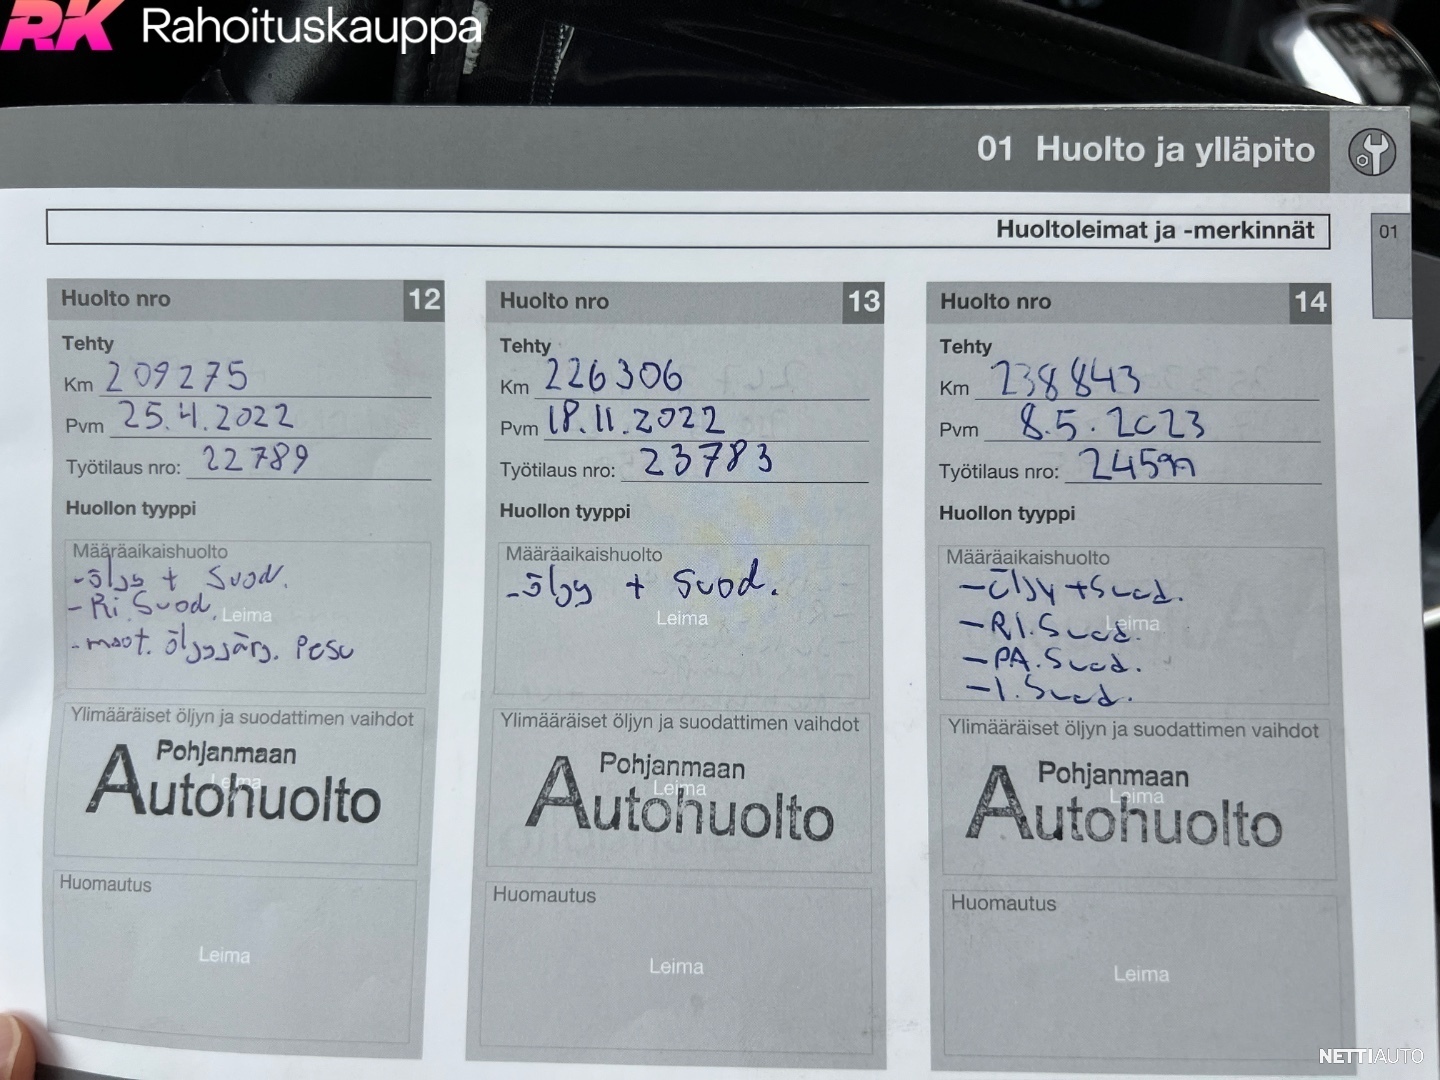 RK Rahoituskauppa
01 Huolto ja ylläpito
Huoltoleimat ja -merkinnät
01
Huolto nro 12
Tehty
Km 209275
Pvm 25.4.2022
Työtilaus nro: 22789
Huollon tyyppi
Määräaikaishuolto
-öljy + Suod.
- Ri. Suod.
Leima
-moot. öljyjärj. Pesu
Ylimääräiset öljyn ja suodattimen vaihdot
Pohjanmaan
Leima
Autohuolto
Huomautus
Leima
Huolto nro 13
Tehty
Km 226306
Pvm 18.11.2022
Työtilaus nro: 23783
Huollon tyyppi
Määräaikaishuolto
-öljy + Suod.
Leima
Ylimääräiset öljyn ja suodattimen vaihdot
Pohjanmaan
Leima
Autohuolto
Huomautus
Leima
Huolto nro 14
Tehty
Km 238843
Pvm 8.5.2023
Työtilaus nro:
Huollon tyyppi
Määräaikaishuolto
-Öljy +Suod.
-RI.Suod.
Leima
-PA.Suod.
-I.Suod.
Ylimääräiset öljyn ja suodattimen vaihdot
Pohjanmaan
Leima
Autohuolto
Huomautus
Leima
NETTIAUTO